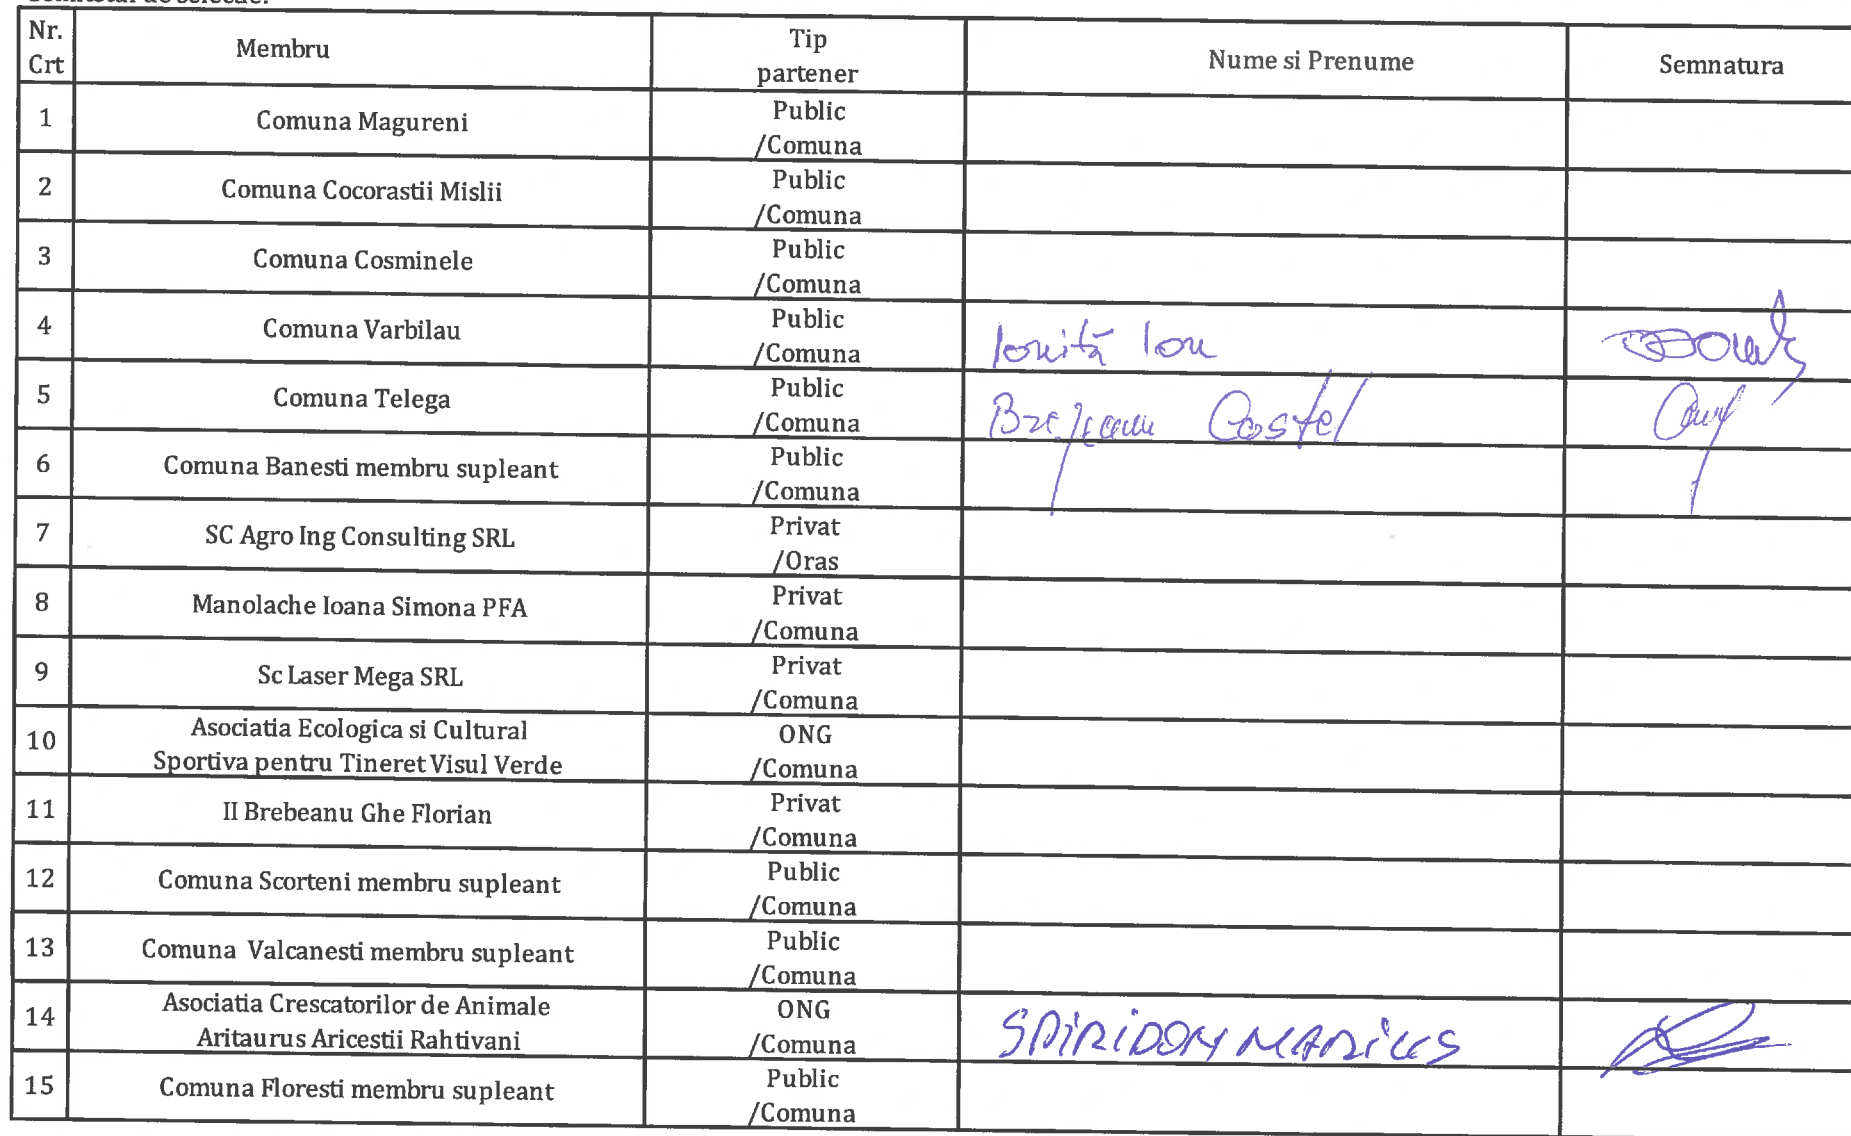 Nr.
Crt
Membru
Tip
partener
Nume si Prenume
Semnatura
1
Comuna Magureni
Public
/Comuna
2
Comuna Cocorastii Mislii
Public
/Comuna
3
Comuna Cosminele
Public
/Comuna
4
Comuna Varbilau
Public
/Comuna
Ioniță Ion
5
Comuna Telega
Public
/Comuna
Costel
6
Comuna Banesti membru supleant
Public
/Comuna
7
SC Agro Ing Consulting SRL
Privat
/Oras
8
Manolache Ioana Simona PFA
Privat
/Comuna
9
Sc Laser Mega SRL
Privat
/Comuna
10
Asociatia Ecologica si Cultural
Sportiva pentru Tineret Visul Verde
ONG
/Comuna
11
II Brebeanu Ghe Florian
Privat
/Comuna
12
Comuna Scorteni membru supleant
Public
/Comuna
13
Comuna Valcanesti membru supleant
Public
/Comuna
14
Asociatia Crescatorilor de Animale
Aritaurus Aricestii Rahtivani
ONG
/Comuna
SPIRIDON MARIUS
15
Comuna Floresti membru supleant
Public
/Comuna